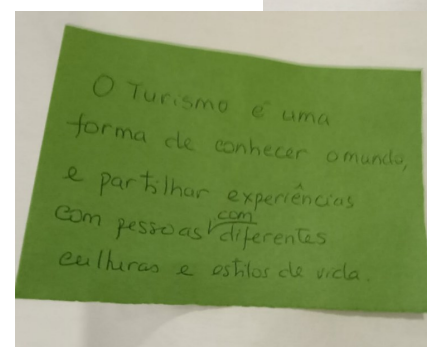 O Turismo é uma
forma de conhecer o mundo,
e partilhar experiências
com pessoas com diferentes
culturas e estilos de vida.